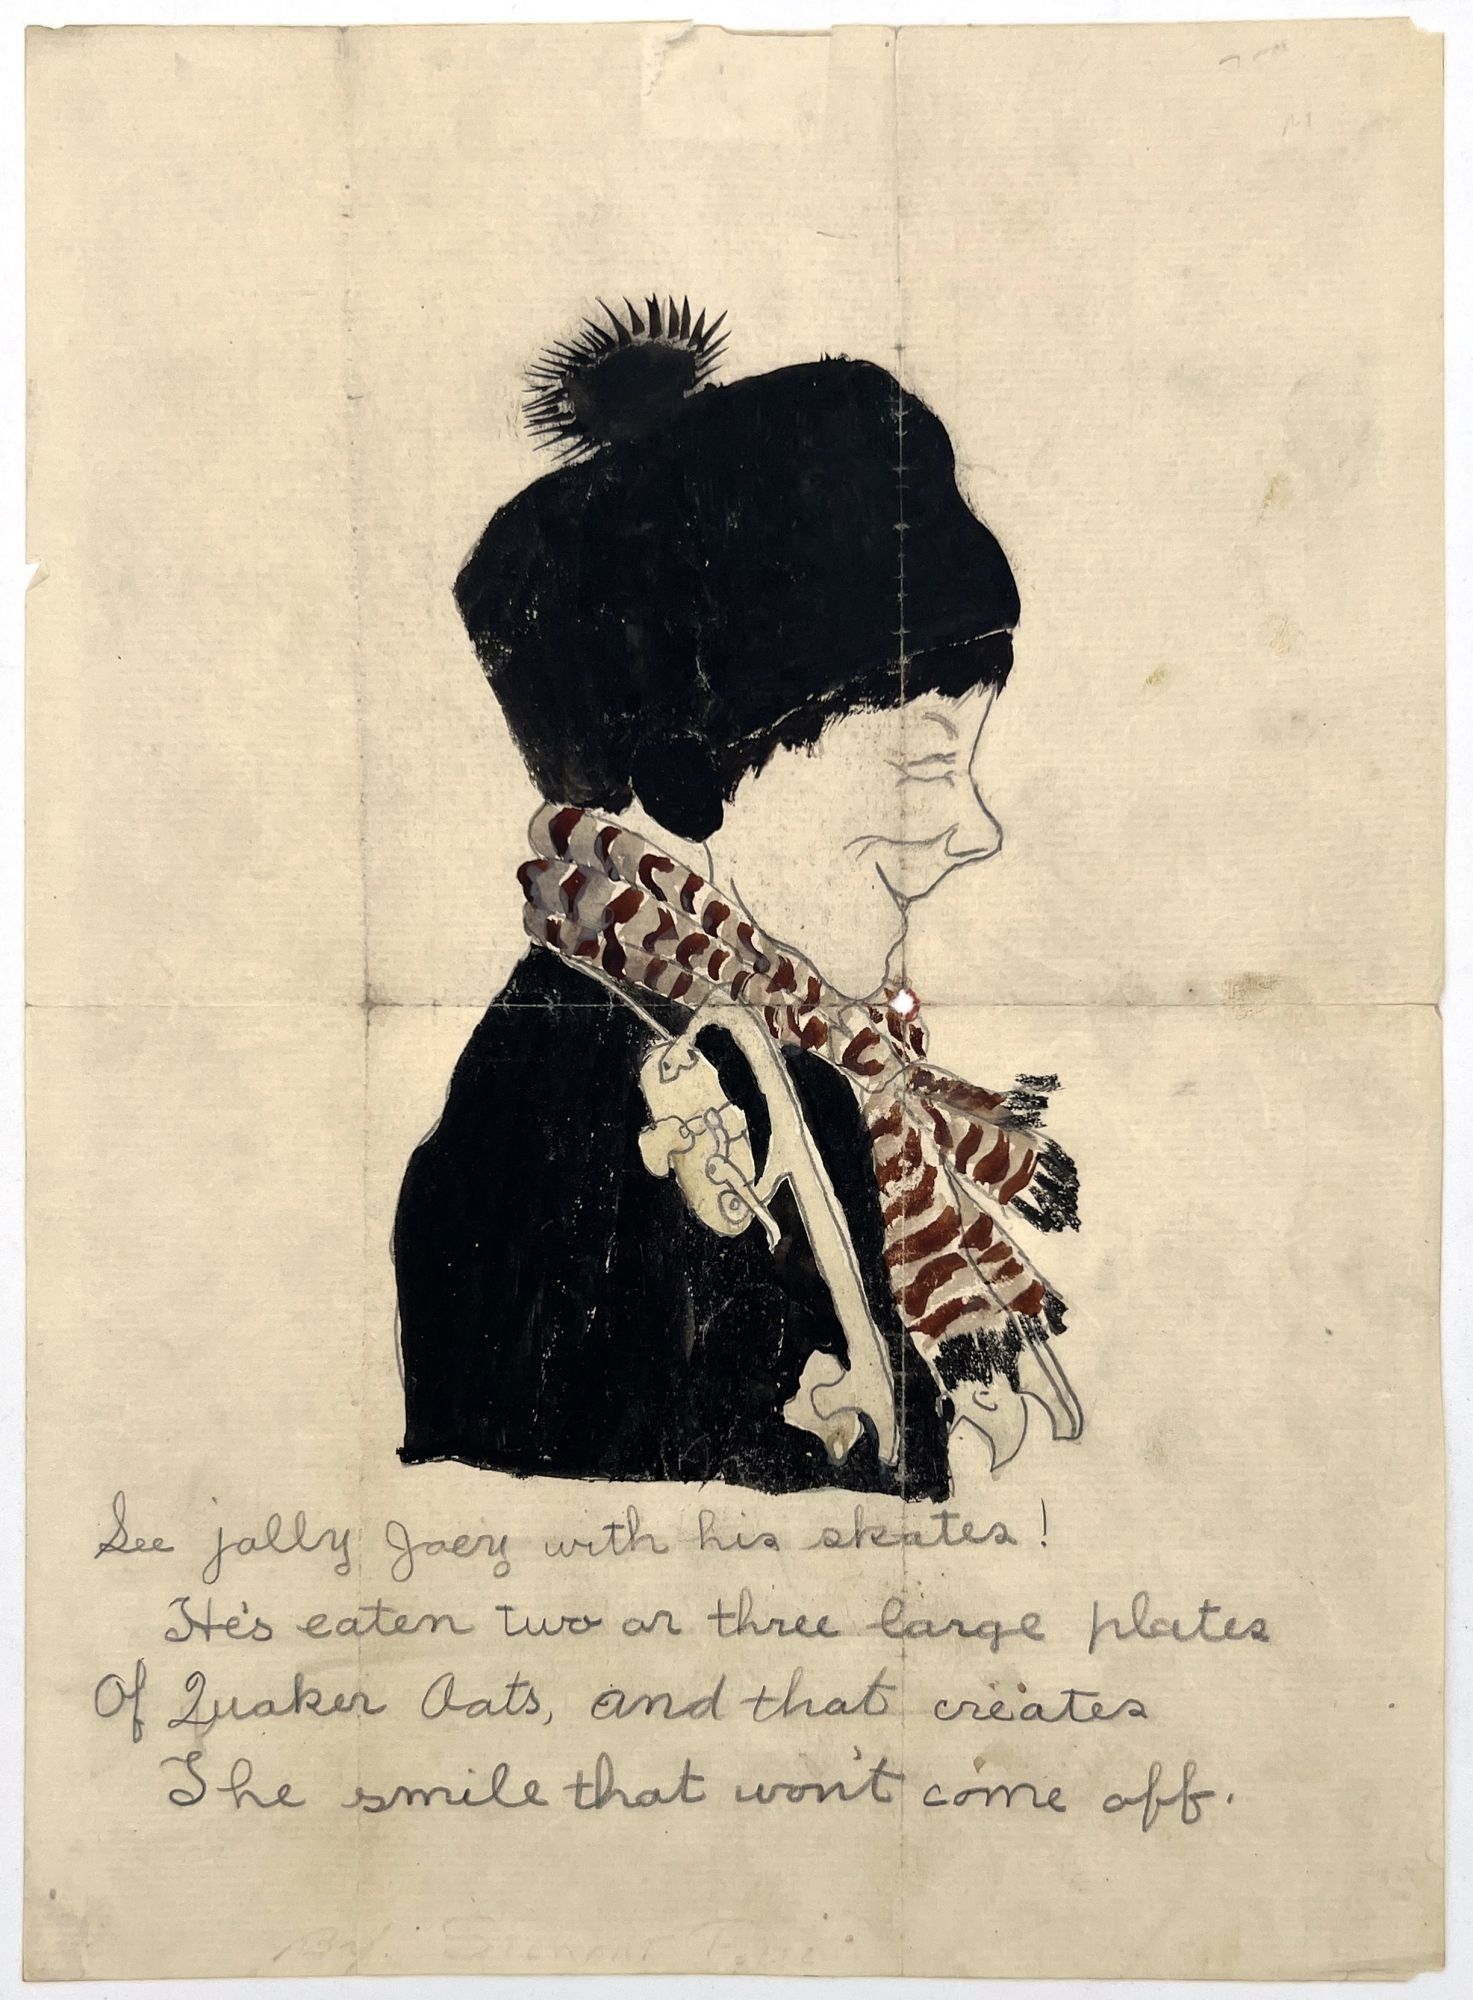 See jolly Joey with his skates!
He's eaten two or three large plates
Of Quaker Oats, and that creates
The smile that won't come off.
By